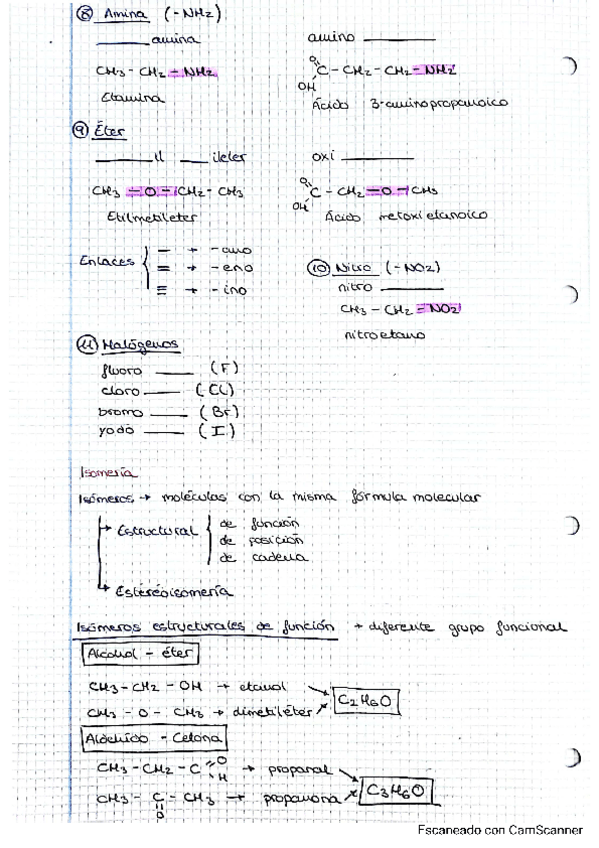 ⑧ Amina (-NH2)
______ amina
amino ______
CH3 - CH2 - NH2
Etamina
O
C - CH2 - CH2 - NH2
OH
Ácido 3-aminopropanoico
⑨ Éter
______ il ___ iléter
oxi ______
CH3 - O - CH2 - CH3
Etilmetiléter
O
C - CH2 - O - CH3
OH
Ácido metoxietanoico
Enlaces { — → -ano
= → -eno
≡ → -ino
⑩ Nitro (-NO2)
nitro ______
CH3 - CH2 - NO2
nitroetano
⑪ Halógenos
fluoro ____ (F)
cloro ____ (Cl)
bromo ____ (Br)
yodo ____ (I)
Isomería
Isómeros → moléculas con la misma fórmula molecular
→ Estructural { de función
de posición
de cadena
→ Estereoisomería
Isómeros estructurales de función → diferente grupo funcional
Alcohol - éter
CH3 - CH2 - OH → etanol
CH3 - O - CH3 → dimetiléter
C2H6O
Aldehído - Cetona
CH3 - CH2 - C =O
H → propanal
CH3 - C - CH3 → propanona
O
C3H6O
Escaneado con CamScanner